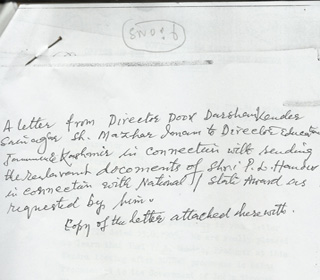 A letter from Director Door Darshan Kender
Srinagar Sh. Mazhar Imam to Director Education
Jammu & Kashmir in connection with sending
the relavant docoments of Shri P. L. Handoo
in connection with National // State Award as
requested by him.
Copy of the letter attached herewith.